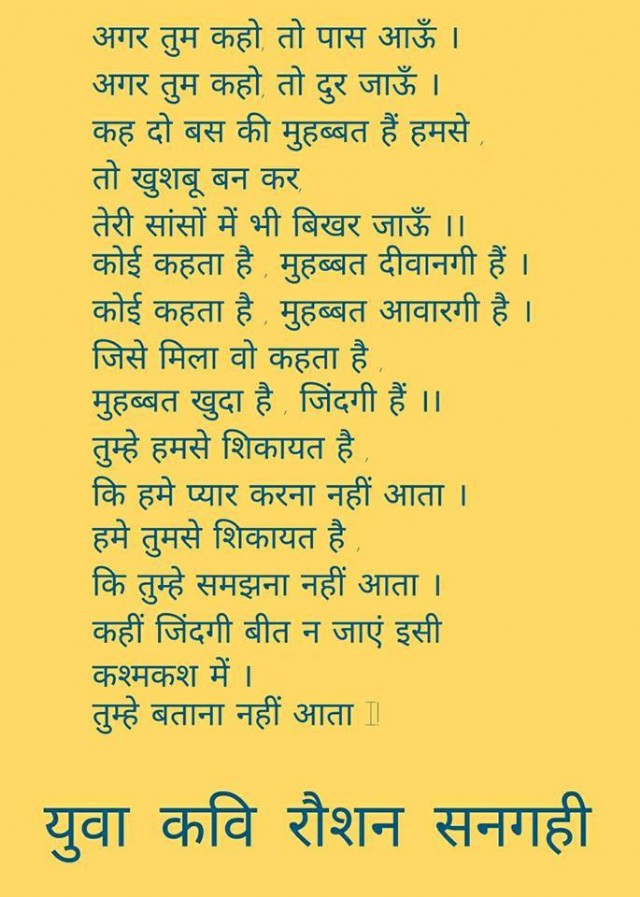 अगर तुम कहो, तो पास आऊँ ।
अगर तुम कहो, तो दुर जाऊँ ।
कह दो बस की मुहब्बत हैं हमसे ,
तो खुशबू बन कर,
तेरी सांसों में भी बिखर जाऊँ ।।
कोई कहता है , मुहब्बत दीवानगी हैं ।
कोई कहता है , मुहब्बत आवारगी है ।
जिसे मिला वो कहता है ,
मुहब्बत खुदा है , जिंदगी हैं ।।
तुम्हे हमसे शिकायत है ,
कि हमे प्यार करना नहीं आता ।
हमे तुमसे शिकायत है ,
कि तुम्हे समझना नहीं आता ।
कहीं जिंदगी बीत न जाएं इसी
कश्मकश में ।
तुम्हे बताना नहीं आता ॥
युवा कवि रौशन सनगही